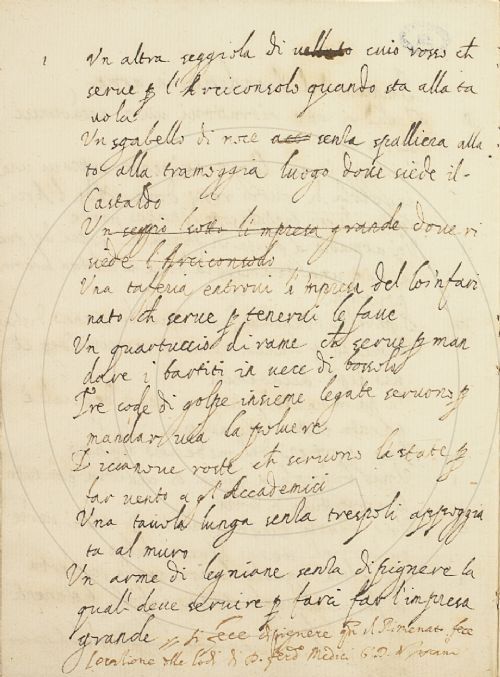 1 Un altra seggiola di velluto cuio rosso ch
serue p l'Arciconsolo quando sta alla ta
uola
Un sgabello di noce acc senza spalliera alla
to alla tramoggia luogo doue siede il
Castaldo
Un seggio sotto l'impresa grande doue ri
siede l'Arciconsolo
Una taferia entroui l'impresa del lo'nfari
nato ch serue p tenerui le faue
Un quartuccio di rame ch serue p man
dare i partiti in uece di bossolo
Tre code di golpe insieme legate seruono p
mandar uia la poluere
Diciannoue roste ch seruono la state p
far uento a gl'Accademici
Una tauola lunga senza trespoli appoggia
ta al muro
Un arme di legniame senza dipignere la
quale deue seruire p farci far l'impresa
grande si fece dipignere qn il Rimenato fece
l'oratione delle lodi di D. Ferdo Medici